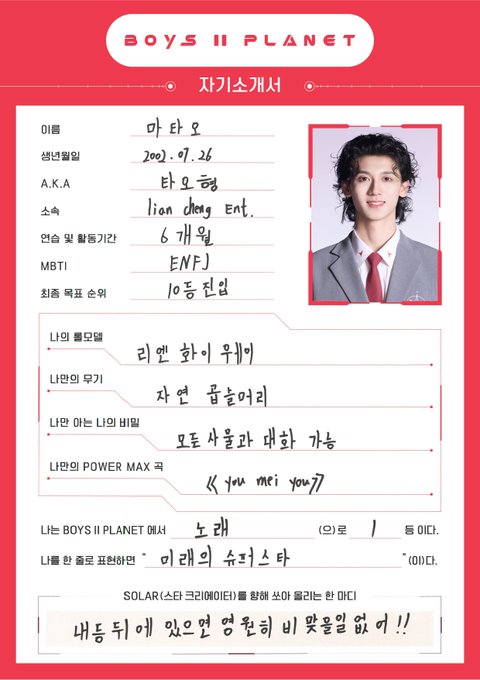 BOYS II PLANET
자기소개서
이름 마타오
생년월일 2002.07.26
A.K.A 타오형
소속 lian cheng Ent.
연습 및 활동기간 6개월
MBTI ENFJ
최종 목표 순위 10등 진입
나의 롤모델 리엔 화이 웨이
나만의 무기 자연 곱슬머리
나만 아는 나의 비밀 모든 사물과 대화 가능
나만의 POWER MAX 곡 《you mei you》
나는 BOYS II PLANET 에서 노래 (으)로 1 등 이다.
나를 한 줄로 표현하면 " 미래의 슈퍼스타 " (이)다.
SOLAR(스타 크리에이터)를 향해 쏘아 올리는 한 마디
내등뒤에 있으면 영원히 비 맞을일 없어!!